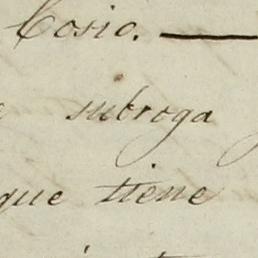 Cosio. —
subroga
que tiene